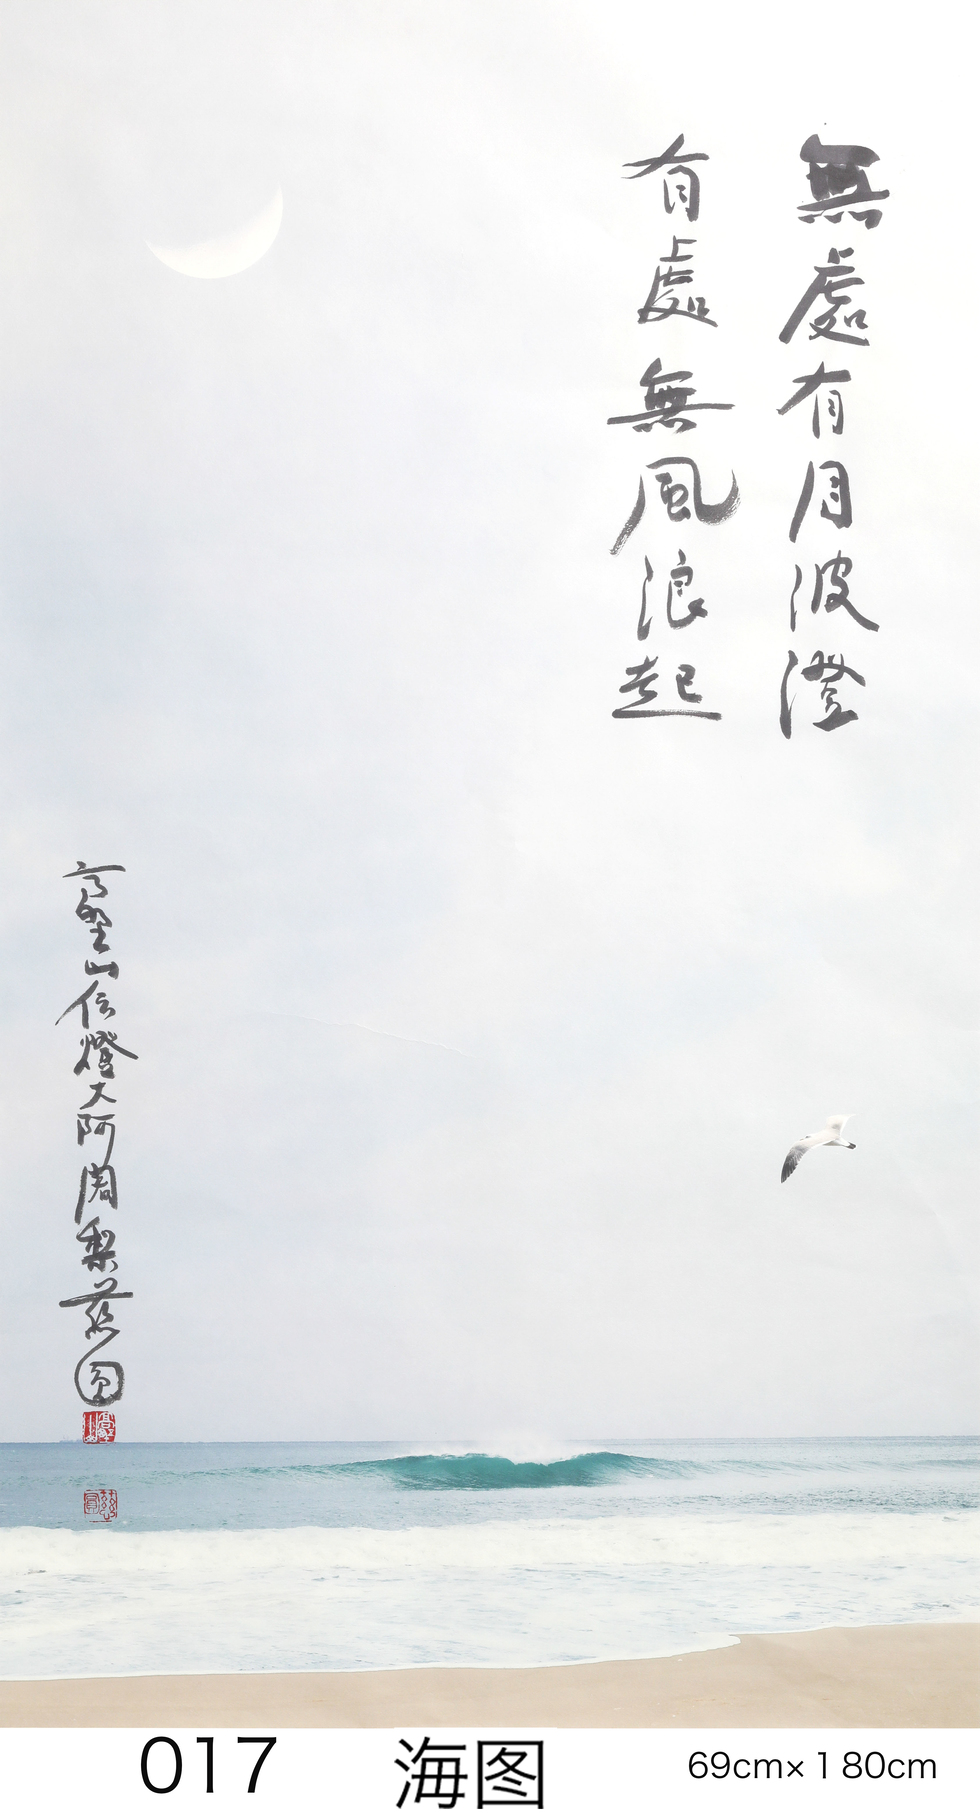 無處有月波澄
有處無風浪起
高野山伝燈大阿闍梨慈圓
017
海图
69cm×180cm